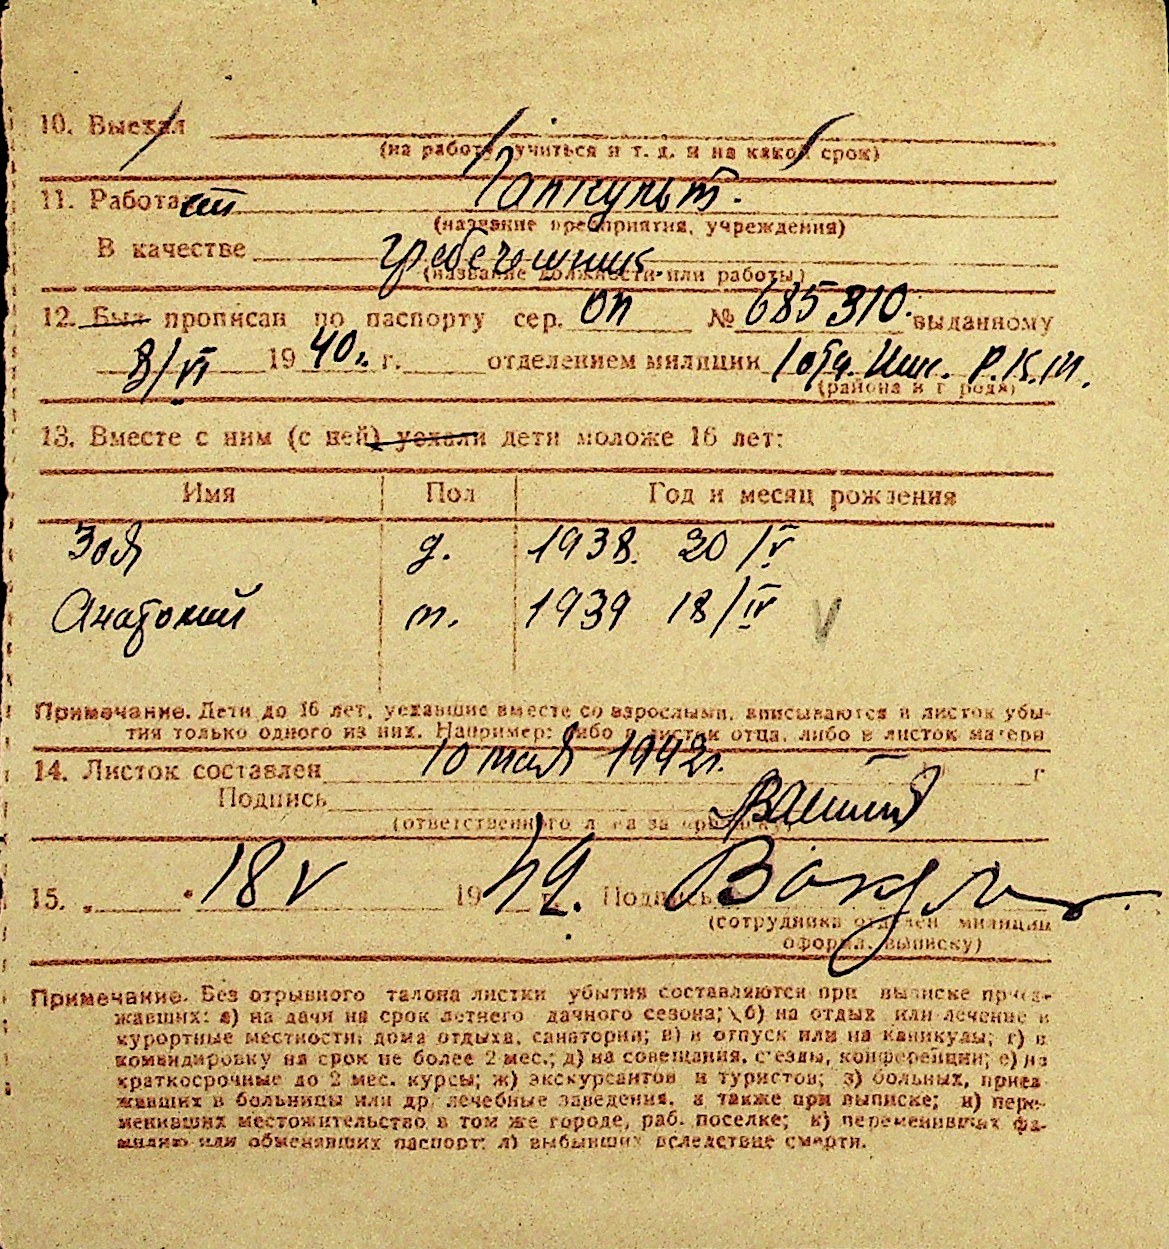 10. Выехал
(на работу, учиться и т. д. и на какой срок)
11. Работает Чапкульт.
(название предприятия, учреждения)
В качестве гребенщик
(название должности или работы)
12. Был прописан по паспорту сер. ОП № 685310. выданному
8/VI 1940 г. г. отделением милиции 1 отд. Р.К.М.
(района и города)
13. Вместе с ним (с ней) уехали дети моложе 16 лет:
Имя Пол Год и месяц рождения
Зоя д. 1938. 20/V
Анатолий м. 1939 18/IV V
Примечание. Дети до 16 лет, уехавшие вместе со взрослыми, вписываются в листок убы-
тия только одного из них. Например: либо в листок отца, либо в листок матери
14. Листок составлен 10 мая 1942 г. г
Подпись
(ответственного лица за прописку)
15. „ " 18 V 1942. Подпись
(сотрудника отделен милиции
оформ. выписку)
Примечание. Без отрывного талона листки убытия составляются при выписке приез-
жавших: а) на дачи на срок летнего дачного сезона; б) на отдых или лечение в
курортные местности, дома отдыха, санатории; в) в отпуск или на каникулы; г) в
командировку на срок не более 2 мес.; д) на совещания, с'езды, конференции; е) на
краткосрочные до 2 мес. курсы; ж) экскурсантов и туристов; з) больных, приез-
жавших в больницы или др. лечебные заведения, а также при выписке; и) пере-
менивших местожительство в том же городе, раб. поселке; к) переменивших фа-
милию или обменявших паспорт; л) выбывших вследствие смерти.